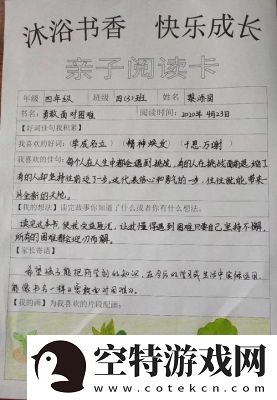 沐浴书香 快乐成长
亲子阅读卡
年级 四年级 班级 四(3)班 姓名
书名：勇敢面对困难 阅读时间：2020年4月23日
【好词佳句我积累】
我喜欢的好词：(学成名立) (精神焕发) (千恩万谢)
我喜欢的佳句：每个人在人生中都会遇到挑战，有的人在挑战面前退缩了
有的人却坚持往前迈了一步。这代表信心和勇气的一步，往往就能带来
片全新的天地。
【我的想法】读完故事你知道了什么或者你有什么想法。
读完这本书，使我受益匪浅，让我懂得遇到困难只要自己坚持不懈，
所有的困难都会迎刃而解。
【家长寄语】
希望孩子能把所学到的知识，在今后的学习或生活中实际运用
能像书名一样《勇敢面对困难》。
【我的画】为我喜欢的片段配画：
空特游戏网
www.cotekcn.com